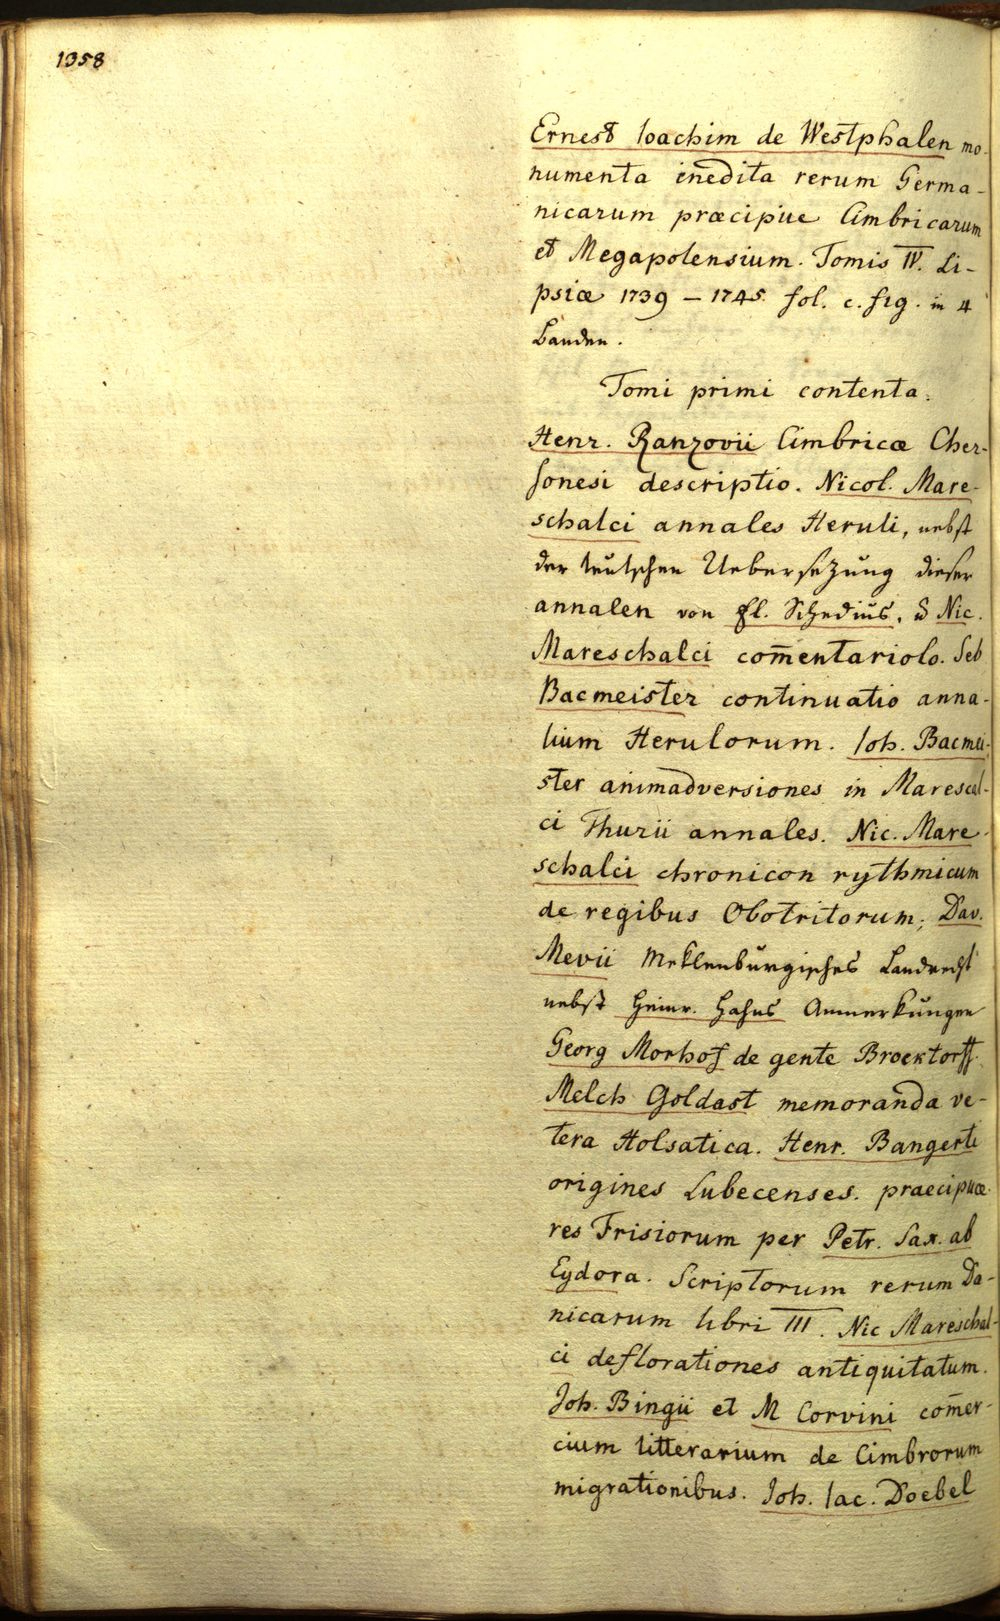 1358
Ernest Ioachim de Westphalen mo-
numenta inedita rerum Germa-
nicarum præcipue Cimbricarum
et Megapolensium. Tomis IV. Li-
psiæ 1739 – 1745. fol. c. fig. in 4
Banden.
Tomi primi contenta.
Henr. Ranzovii Cimbricæ Cher-
sonesi descriptio. Nicol. Mare-
schalci annales Heruli, nebst
der teutschen Uebersezung dieser
annalen von El. Schedius, u Nic.
Mareschalci com̄entariolo. Seb
Bacmeister continuatio anna-
lium Herulorum. Ioh. Bacmei-
ster animadversiones in Marescal-
ci Thurii annales. Nic. Mare-
schalci chronicon rythmicum
de regibus Obotritorum, Dav.
Mevii Meklenburgisches Landrecht
nebst Heinr. Hahns Anmerkungen
Georg Morhof de gente Brocktorff.
Melch Goldast memoranda ve-
tera Holsatica. Henr. Bangerti
origines Lubecenses. praecipuæ
res Frisiorum per Petr. Sax. ab
Eydora. Scriptorum rerum Da-
nicarum libri III. Nic Mareschal-
ci deflorationes antiquitatum.
Joh. Bingii et M Corvini com̄er-
cium litterarium de Cimbrorum
migrationibus. Joh. Iac. Doebel